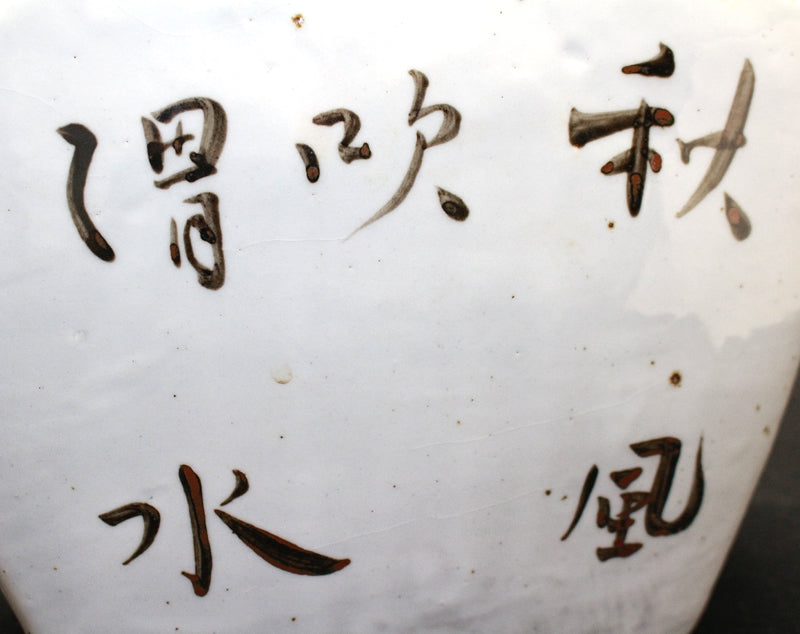 秋風
吹
渭水